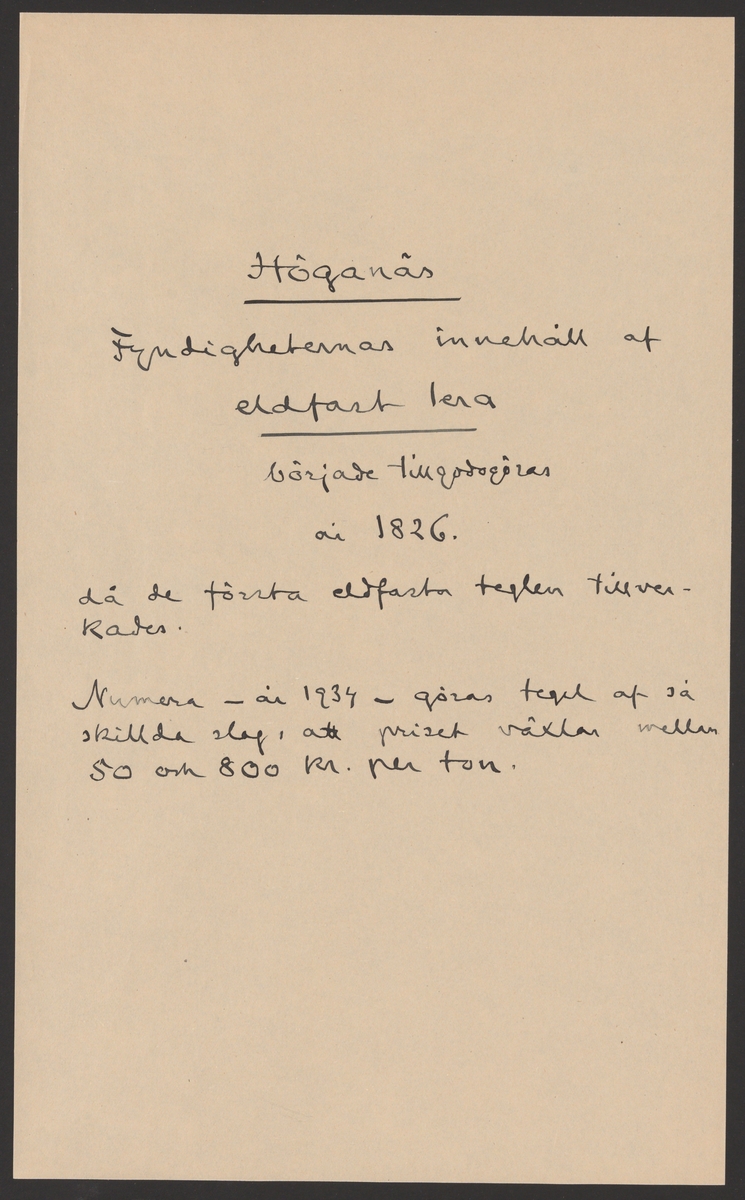 Höganäs
Fyndigheternas innehåll af
eldfast lera
började tillgodogöras
år 1826.
då de första eldfasta teglen tillver-
kades.
Numera – år 1934 – göras tegel af så
skillda slag, att priset växlar mellan
50 och 800 kr. per ton.